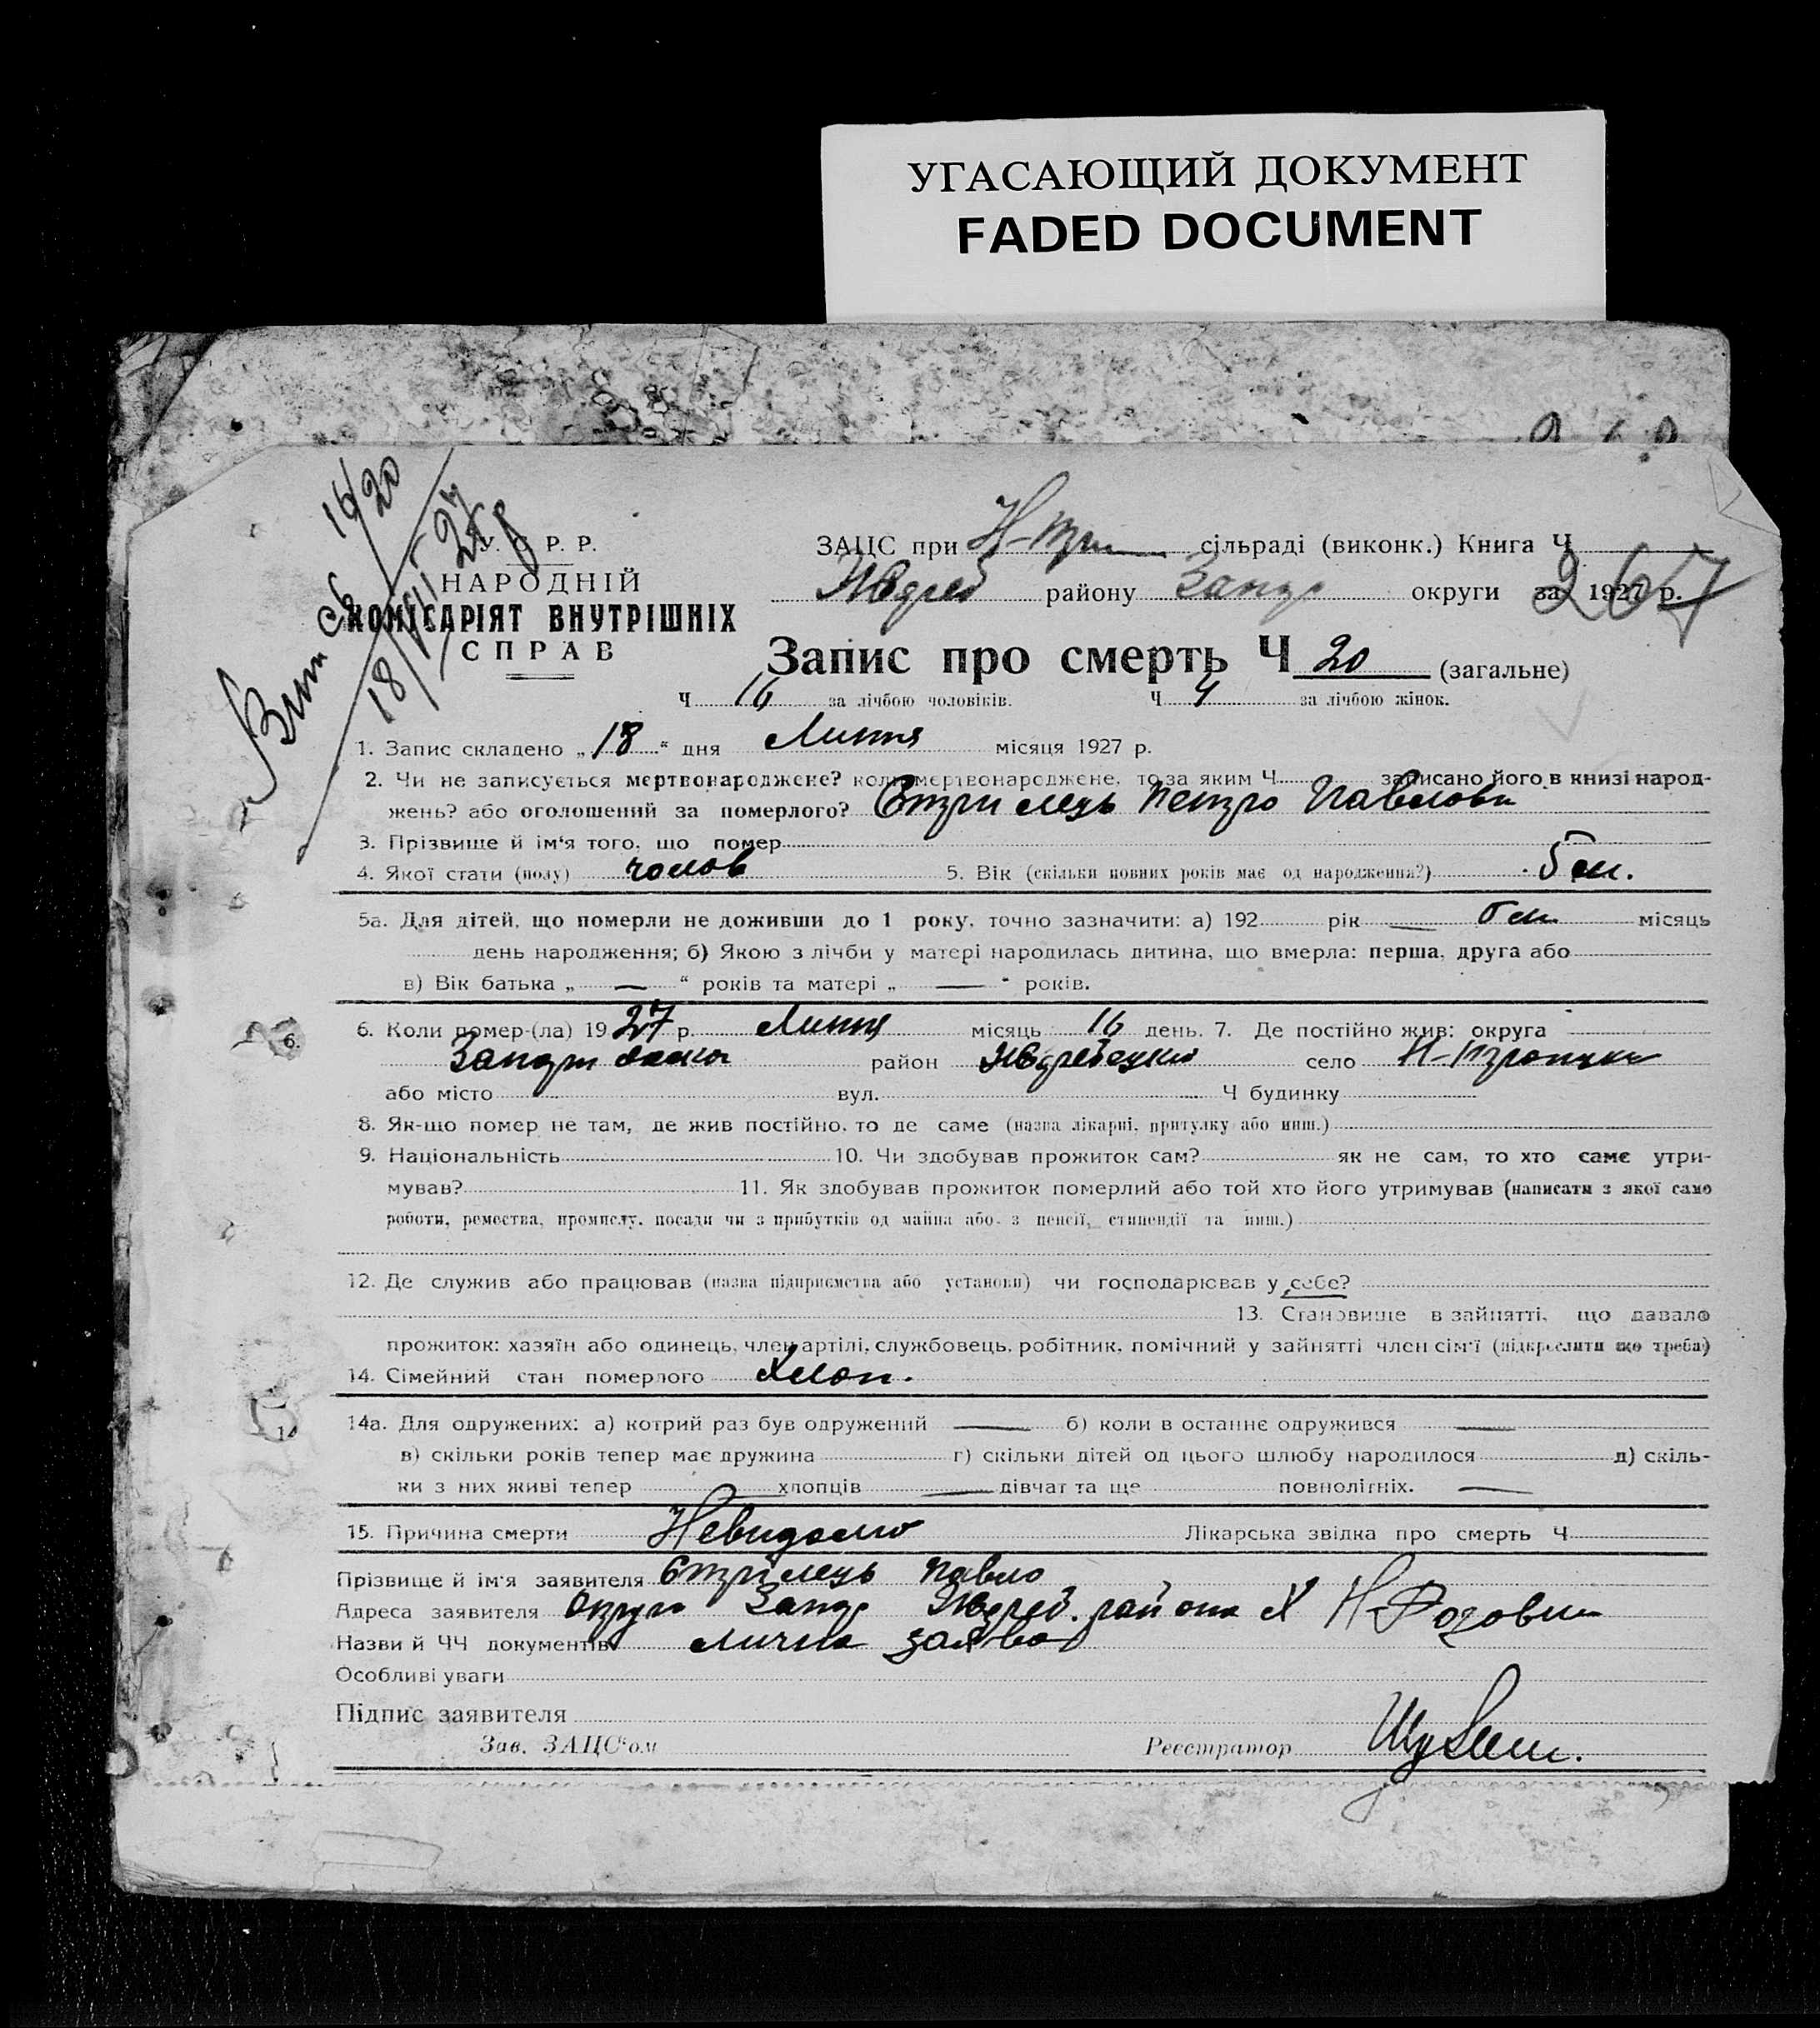 УГАСАЮЩИЙ ДОКУМЕНТ
FADED DOCUMENT
16/20
18/VII 27
У. С. Р. Р.
НАРОДНІЙ
КОМІСАРІЯТ ВНУТРІШНІХ
СПРАВ
ЗАЦС при Н-Тр сільраді (виконк.) Книга Ч
району Запор округи за 1927 р.
267
Запис про смерть Ч 20 (загальне)
Ч 16 за лічбою чоловіків. Ч 4 за лічбою жінок.
1. Запис складено „18“ дня Липня місяця 1927 р.
2. Чи не записується мертвонароджене? коли мертвонароджене, то за яким Ч записано його в книзі народ-
жень? або оголошений за померлого? Стрилець Петро Павлови
3. Прізвище й ім'я того, що помер
4. Якої статі (полу) чолов 5. Вік (скільки повних років має од народження?) 5 м.
5а. Для дітей, що померли не доживши до 1 року, точно зазначити: а) 192 рік — 5 м місяць
день народження; б) Якою з лічби у матері народилась дитина, що вмерла: перша, друга або
в) Вік батька „ — “ років та матері „ — “ років.
6. Коли помер-(ла) 1927 р. Липня місяць 16 день. 7. Де постійно жив: округа
6.
район село Н-Троицки
або місто вул. Ч будинку
8. Як-що помер не там, де жив постійно, то де саме (назва лікарні, притулку або инш.)
9. Національність 10. Чи здобував прожиток сам? як не сам, то хто саме утри-
мував? 11. Як здобував прожиток померлий або той хто його утримував (написати з якої само
роботи, ремества, промислу, посади чи з прибутків од майна або з пенсії, стипендії та инш.)
12. Де служив або працював (назва підприємства або установи) чи господарював у себе?
13. Становище в зайнятті, що давало
прожиток: хазяїн або одинець, член артілі, службовець, робітник, помічний у зайнятті член сім'ї (підкреслити що треба)
14. Сімейний стан померлого Хлоп.
14а. Для одружених: а) котрий раз був одружений — б) коли в останнє одружився —
в) скільки років тепер має дружина г) скільки дітей од цього шлюбу народилося д) скіль-
ки з них живі тепер — хлопців — дівчат та ще повнолітніх. —
15. Причина смерти Невидомо Лікарська звілка про смерть Ч
Прізвище й ім'я заявителя Стрілець Павло
Адреса заявителя Округа Запор района Х
Назви й ЧЧ документів лична заява
Особливі уваги
Підпис заявителя
Зав. ЗАЦС‘ом Реєстратор